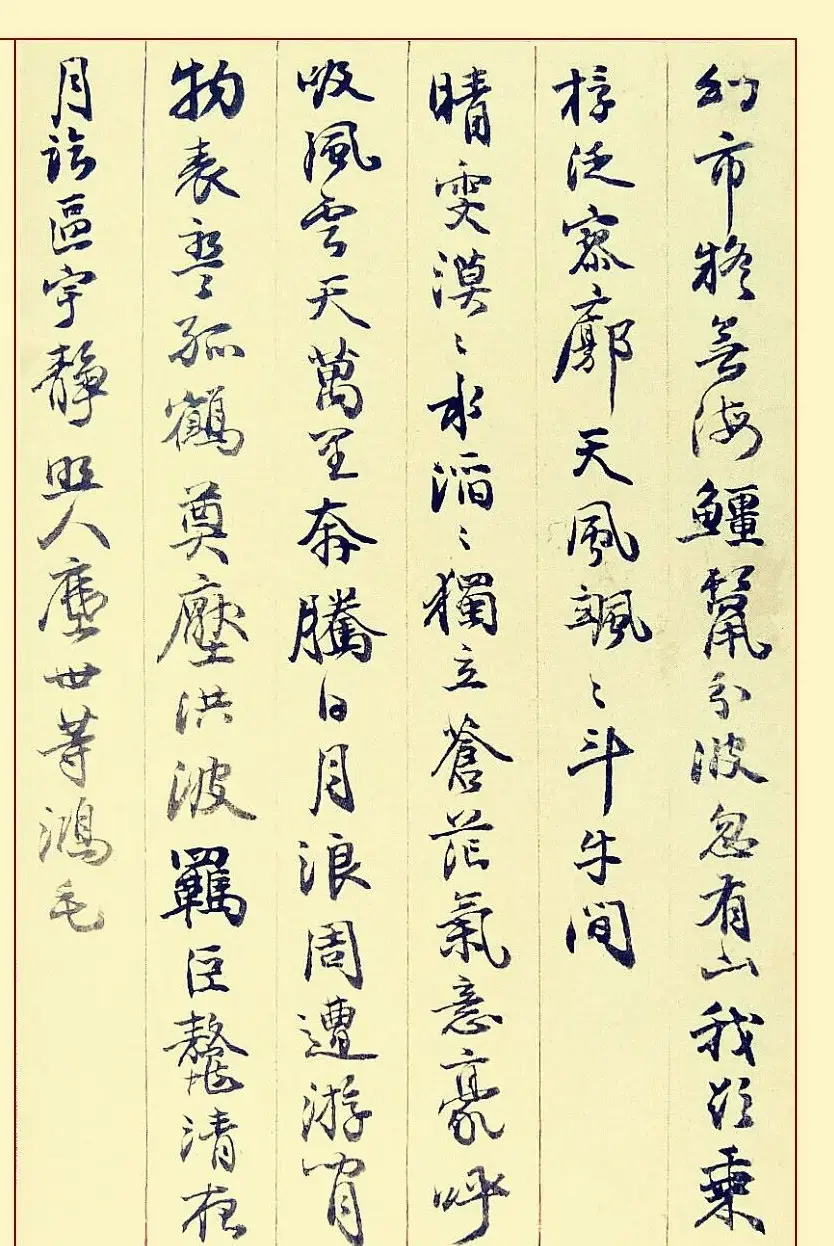 幻市疑無海䲔鬣分波忽有山我欲乘
桴泛寥廓天風颯〻斗牛間
晴雯漠〻水滔〻獨立蒼茫氣意豪呼
吸風雲天萬里奔騰日月浪周遭游閒
物表孤鶴奠壓洪波羈巨鼇清夜
月臨區宇靜照人塵世等鴻毛